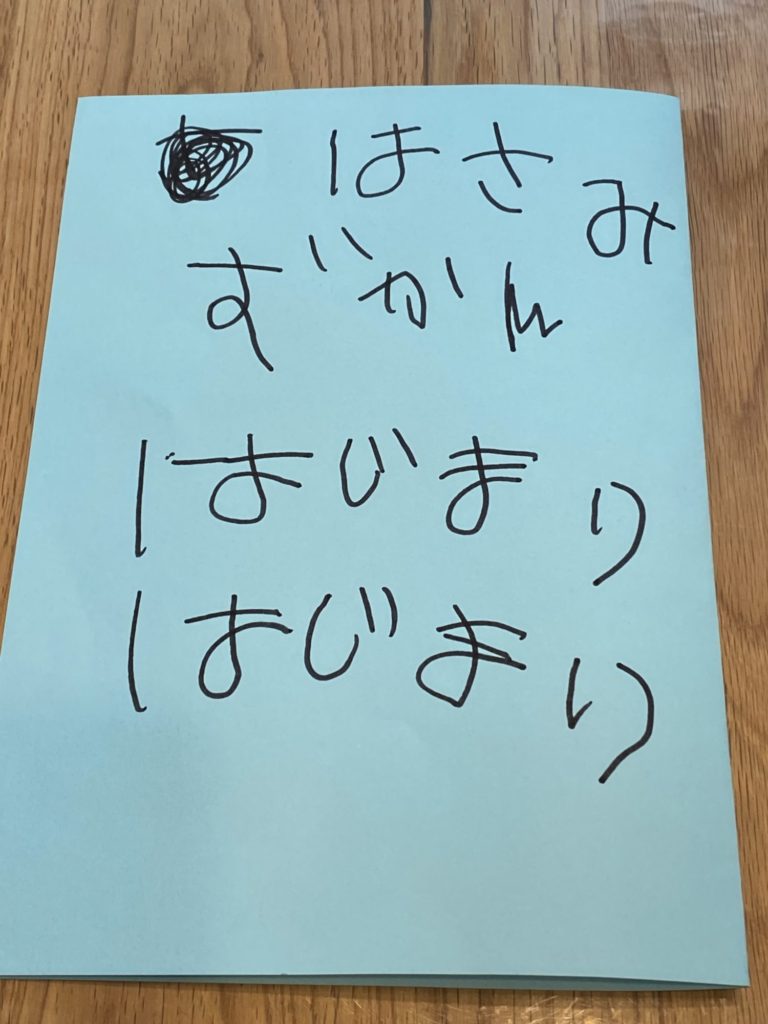 はさみ
ずかん
はじまり
はじまり